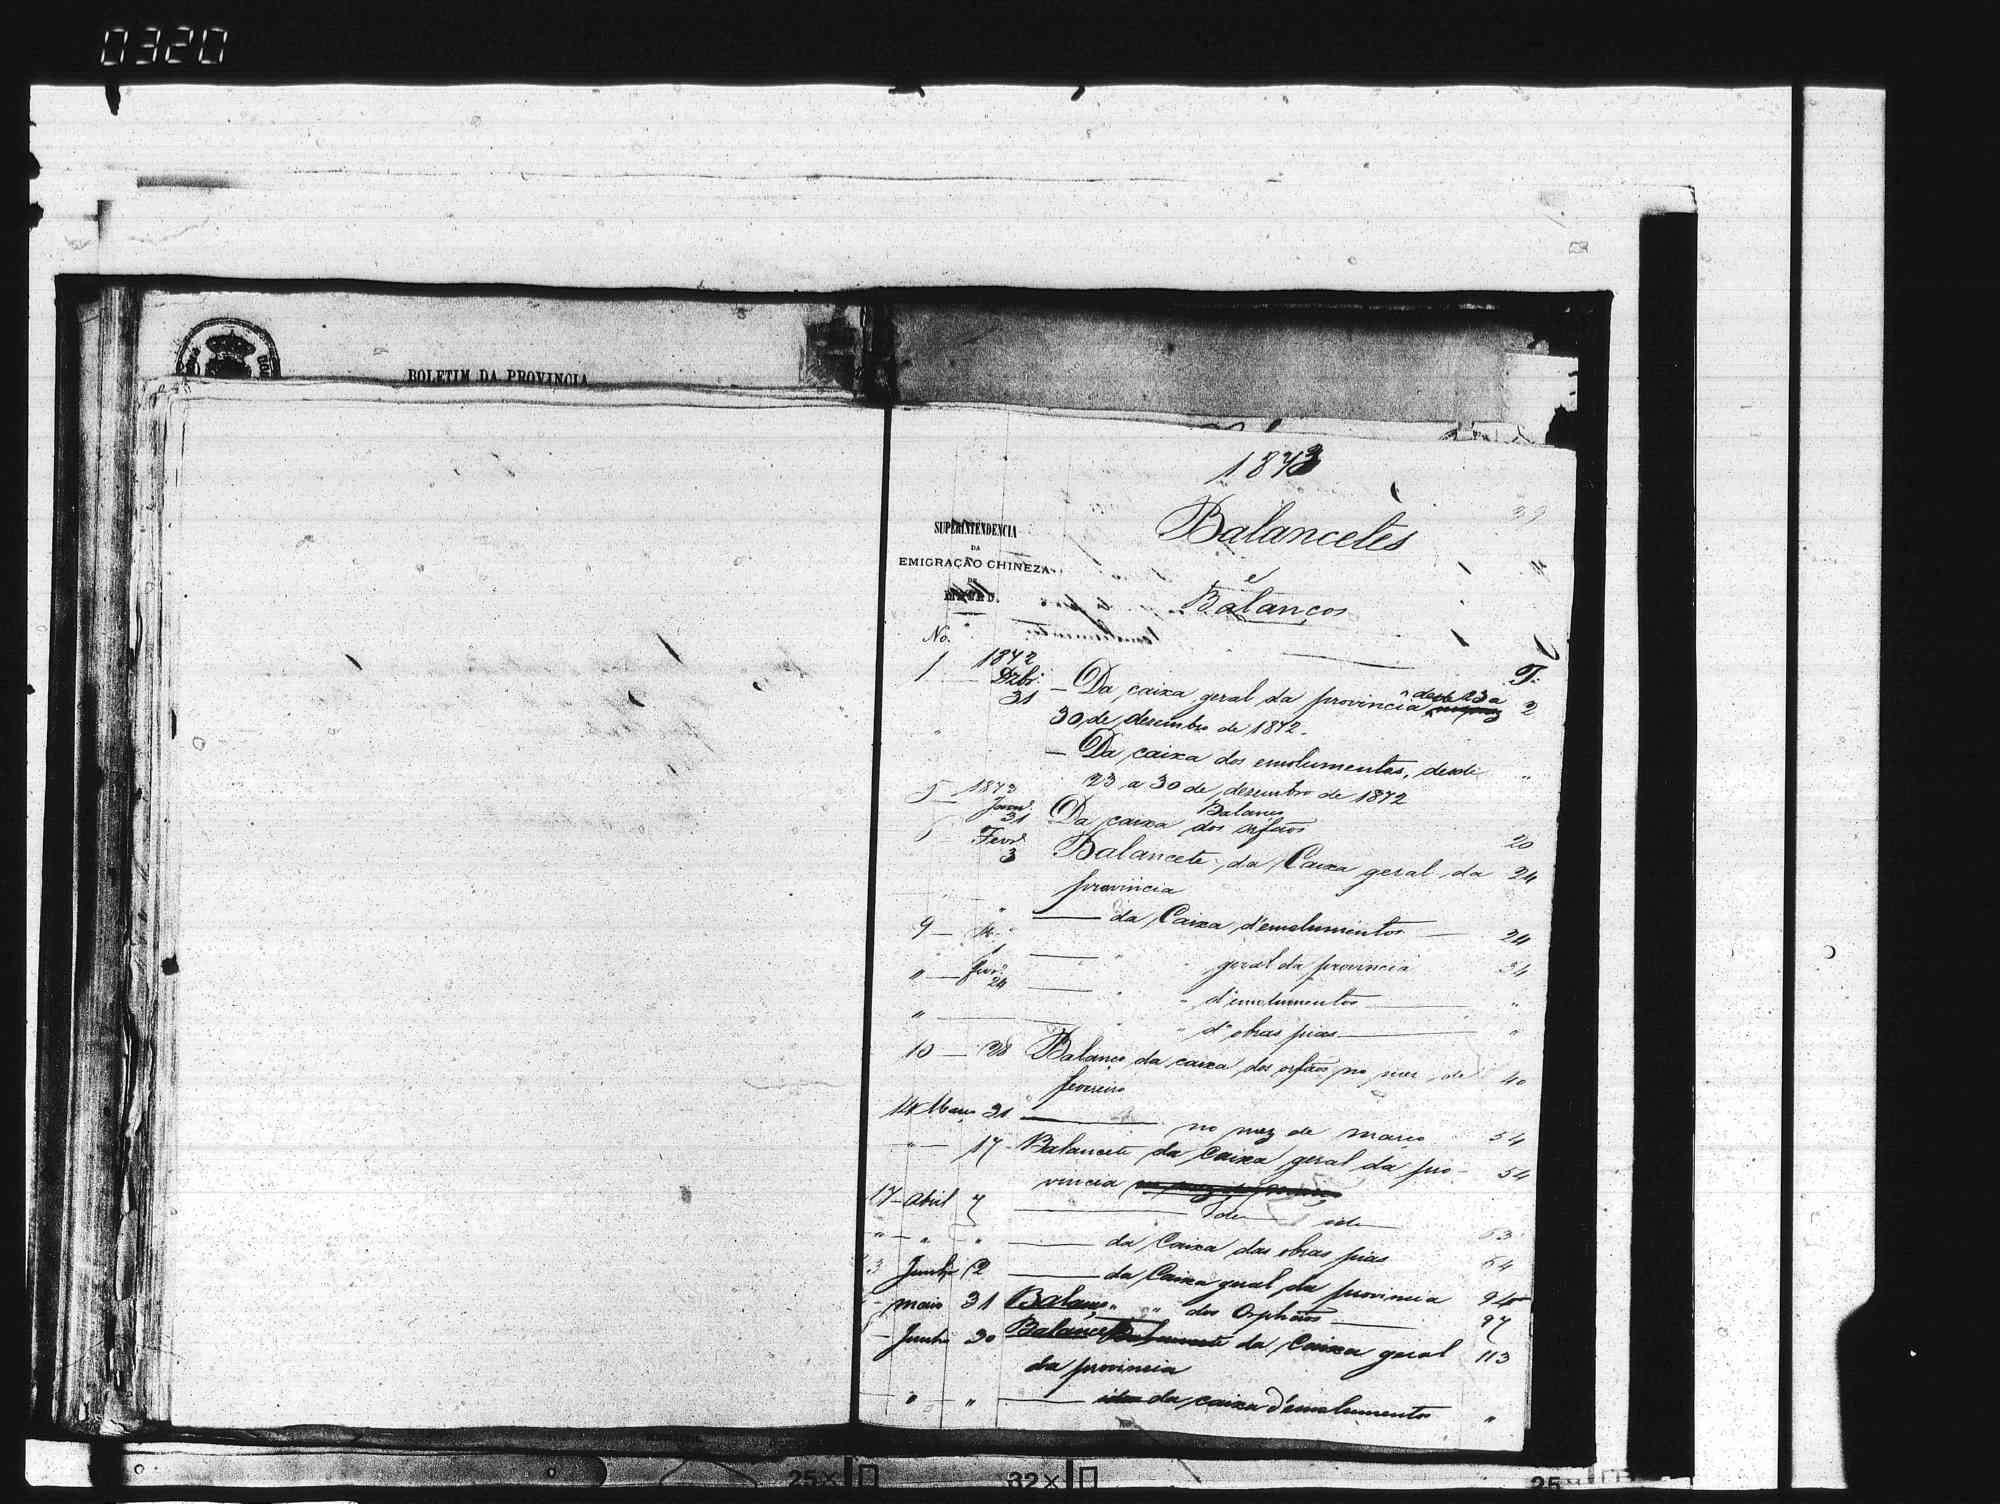 0320
BOLETIM DA PROVINCIA
1873
39
Balancetes
SUPERINTENDENCIA
DA
EMIGRAÇÃO CHINEZA
DE
MACAU.
e
Balanços
No.
F:
1 — 1872 Dzbr. 31 — Da caixa geral da provincia desde 23 a 2
30 de desembro de 1872.
— Da caixa dos emolumentos, desde "
23 a 30 de desembro de 1872
5 — 1873 Janr. 31 Da caixa dos orfãos Balanço 20
Fevr. 3 Balancete da Caixa geral da 24
provincia
" — da Caixa d'emolumentos — 24
9 — — " " geral da provincia 34
" — Fevr. 24 — " " d'emolumentos — "
" — " " d'obras pias — "
10 — 28 Balanço da caixa dos orfãos no mez de 40
fevereiro
14 Março 31 — no mez de março 54
" — 17 - Balancete da Caixa geral da pro- 54
vincia
17 — Abril 7 — ide ide 63
" — " " — da Caixa das obras pias 64
3 Junho 2 — da Caixa geral da provincia 94
" maio 31 Balanço " " dos Orphãos — 97
— Junho 30 Balancete da Caixa geral 113
da provincia
" — " — da caixa d'emolumentos "
25× 32× 25×